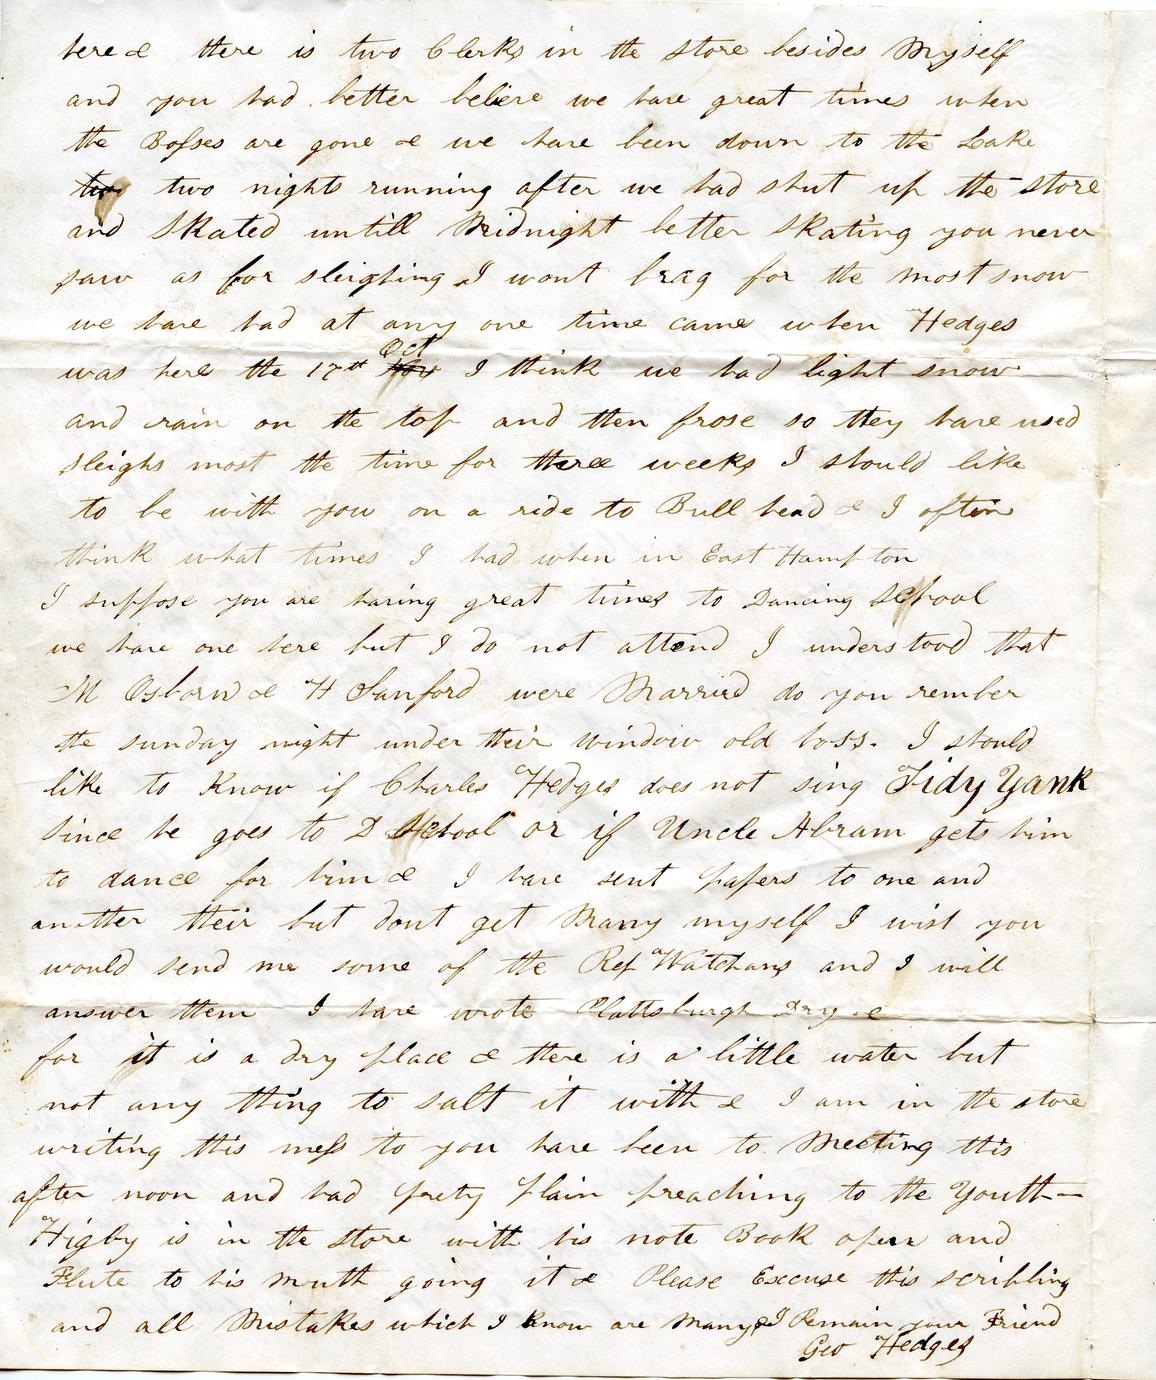 here & there is two Clerks in the store besides Myself
and you had better believe we have great times when
the Bosses are gone & we have been down to the Lake
two two nights running after we had shut up the store
and Skated untill Midnight better Skating you never
saw as for sleighing I wont brag for the most snow
we have had at any one time came when Hedges
was here the 17th Nov Oct I think we had light snow
and rain on the top and then frose so they have used
sleighs most the time for three weeks I should like
to be with you on a ride to Bull head & I often
think what times I had when in East Hampton
I suppose you are having great times to Dancing School
we have one here but I do not attend I understood that
M Osborn & H Sanford were Married do you rember
the sunday night under their window old boss. I should
like to Know if Charles Hedges does not sing Tidy Yank
since he goes to D School or if Uncle Abram gets him
to dance for him & I have sent papers to one and
another their but dont get Many myself I wish you
would send me some of the Rep Watchans and I will
answer them I have wrote Plattsburgh Dry &
for it is a dry place & there is a little water but
not any thing to salt it with & I am in the store
writing this mess to you have been to Meeting this
after noon and had prety plain preaching to the Youth—
Higby is in the store with his note Book open and
Flute to his mouth going it & Please Excuse this scribling
and all Mistakes which I know are many & I Remain your Friend
Geo Hedges